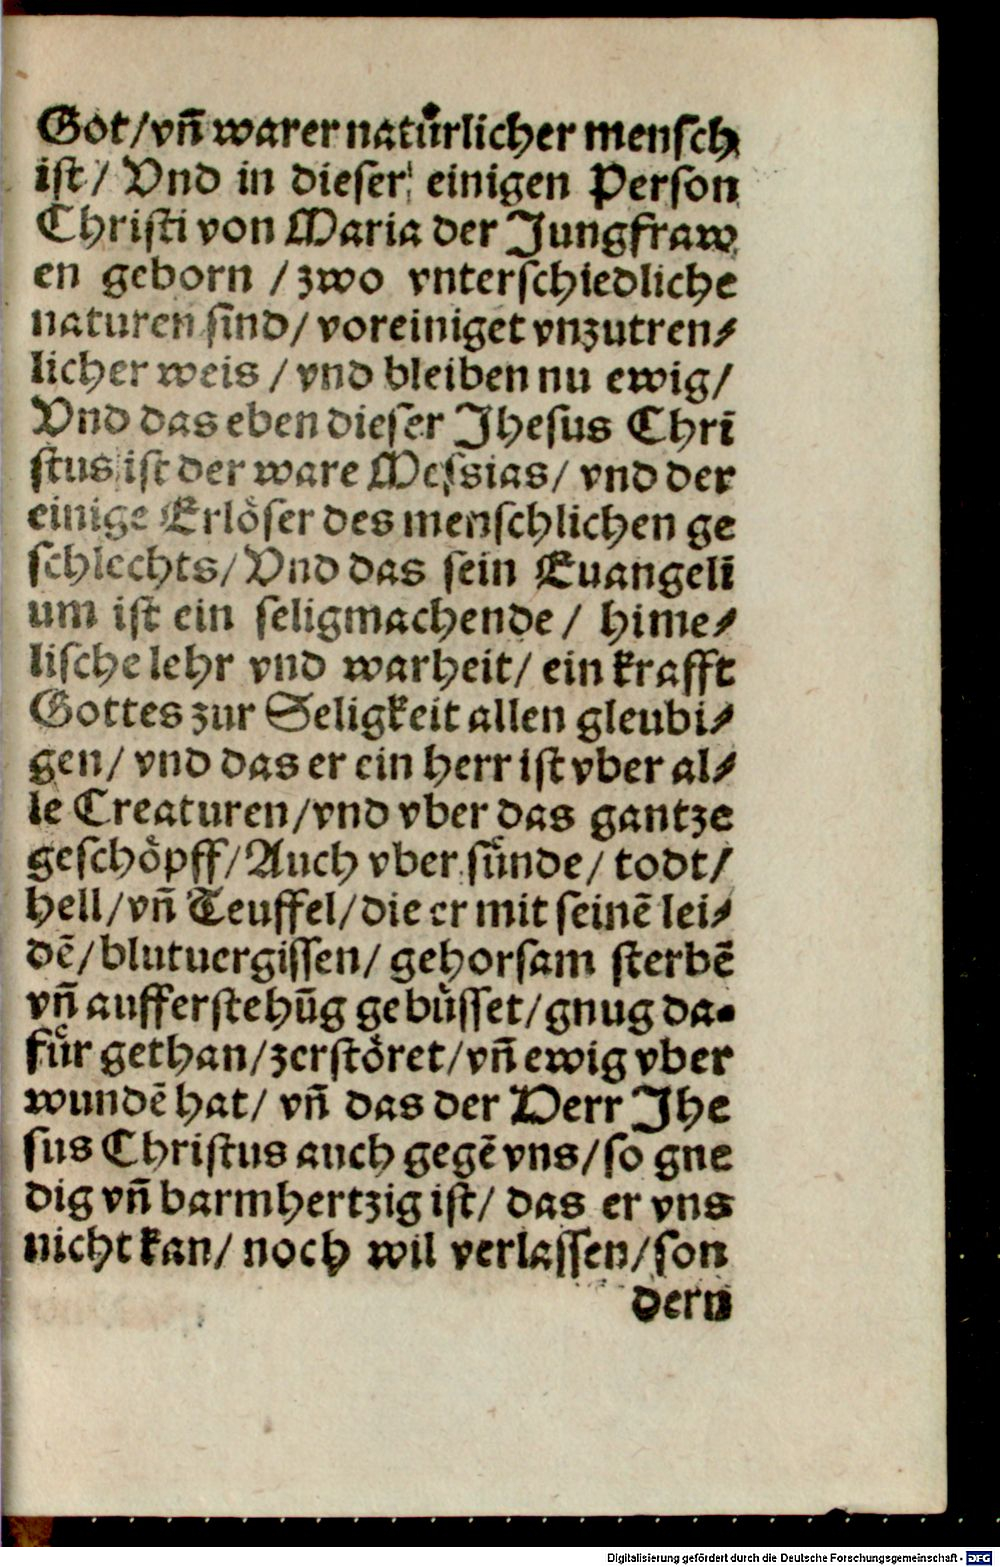 Got/vñ warer natuͤrlicher mensch
ist/ Vnd in dieser einigen Person
Christi von Maria der Jungfraw
en geborn /zwo vnterschiedliche
naturen sind/ voreiniget vnzutren⸗
licher weis / vnd bleiben nu ewig/
Vnd das eben dieser Jhesus Chri
stus ist der ware Messias/ vnd der
einige Erloͤser des menschlichen ge
schlechts/ Vnd das sein Euangeli
um ist ein seligmachende / hime⸗
lische lehr vnd warheit/ ein krafft
Gottes zur Seligkeit allen gleubi⸗
gen/ vnd das er ein herr ist vber al⸗
le Creaturen/vnd vber das gantze
geschoͤpff/Auch vber suͤnde/ todt/
hell/vñ Teuffel/die er mit seinē lei⸗
dē/blutuergissen/ gehorsam sterbē
vñ aufferstehūg gebuͤsset/gnug da⸗
fuͤr gethan/zerstoͤret/vñ ewig vber
wundē hat/ vñ das der Herr Jhe
sus Christus auch gegē vns/so gne
dig vñ barmhertzig ist/ das er vns
nicht kan/ noch wil verlassen/son
dern
Digitalisierung gefördert durch die Deutsche Forschungsgemeinschaft - DFG